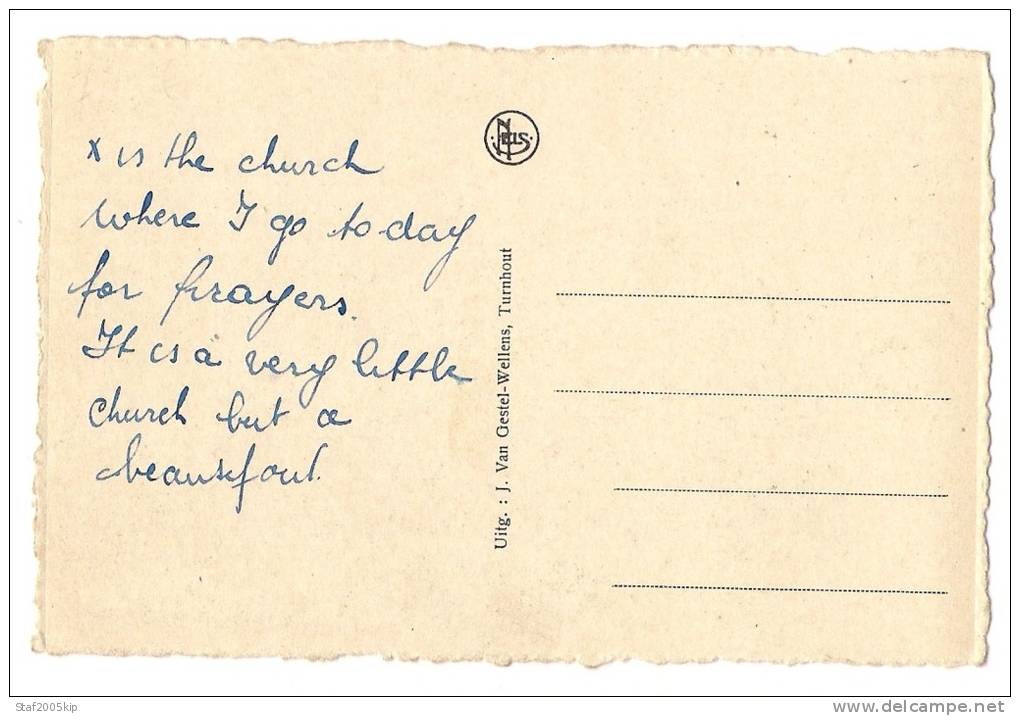 x is the church
where I go to-day
for prayers.
It is a very little
church but a
beautifoul.
NELS
Uitg. : J. Van Gestel-Wellens, Turnhout
Staf2005kip
www.delcampe.net